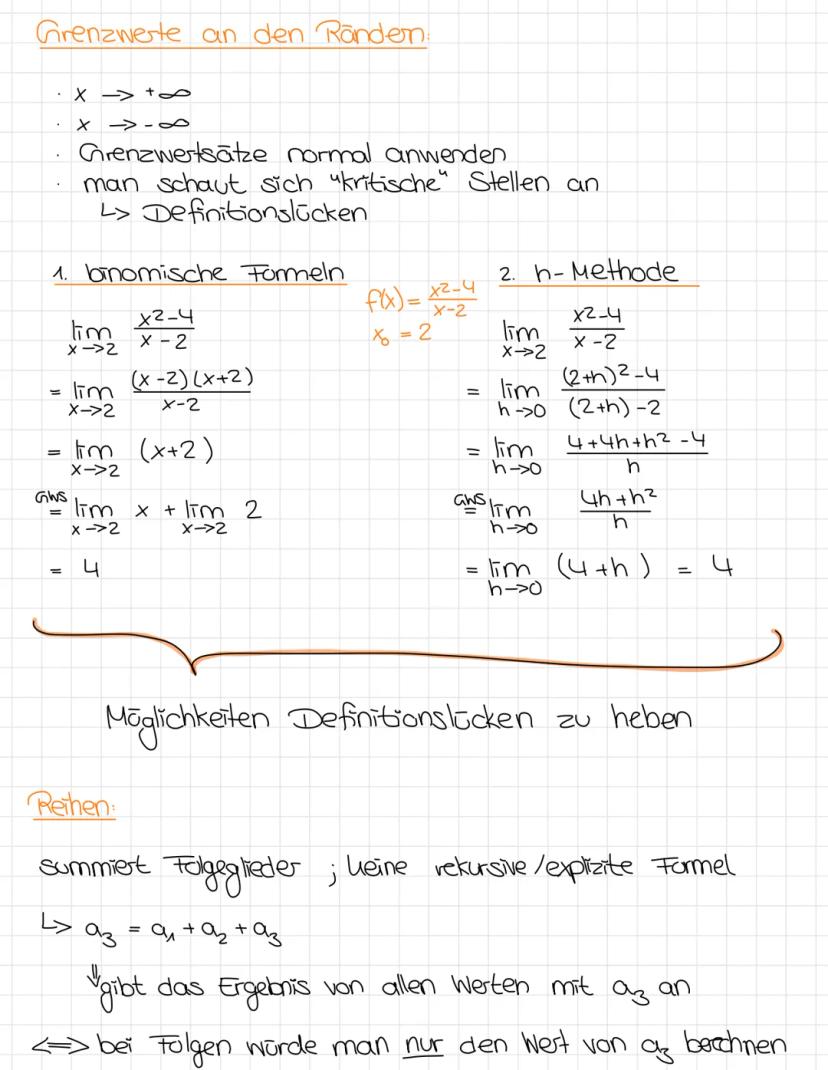 Grenzwerte an den Rändern:
· x → +∞
· x → -∞
· Grenzwertsätze normal anwenden
· man schaut sich "kritische" Stellen an
↳ Definitionslücken
1. binomische Formeln
lim x→2 (x²-4)/(x-2)
= lim x→2 ((x-2)(x+2))/(x-2)
= lim x→2 (x+2)
GWS = lim x→2 x + lim x→2 2
= 4
f(x) = (x²-4)/(x-2)
x₀ = 2
2. h-Methode
lim x→2 (x²-4)/(x-2)
= lim h→0 ((2+h)²-4)/((2+h)-2)
= lim h→0 (4+4h+h²-4)/h
GWS = lim h→0 (4h+h²)/h
= lim h→0 (4+h) = 4
Möglichkeiten Definitionslücken zu heben
Reihen:
summiert Folgeglieder ; keine rekursive/explizite Formel
↳ a₃ = a₁ + a₂ + a₃
⇓ gibt das Ergebnis von allen Werten mit a₃ an
⟺ bei Folgen würde man nur den Wert von a₃ berchnen